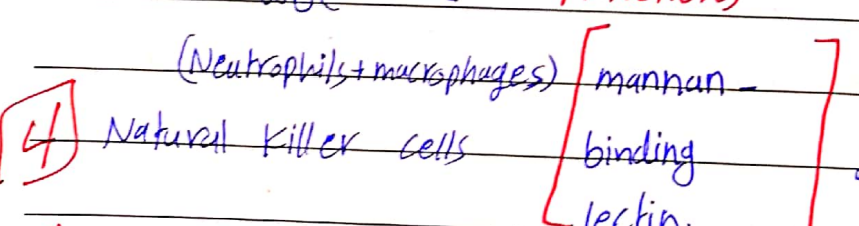 (Neutrophils + macrophages) [mannan-
4 Natural Killer cells binding
lectin.]